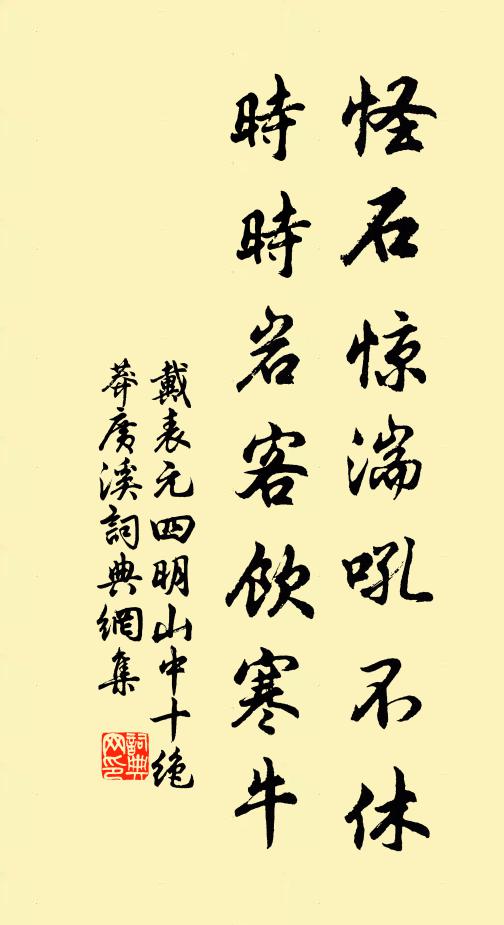 怪石惊湍吼不休
時時岩客飲寒牛
戴表元四明山中十絶
莽廣溪詞典網集
詞典网印